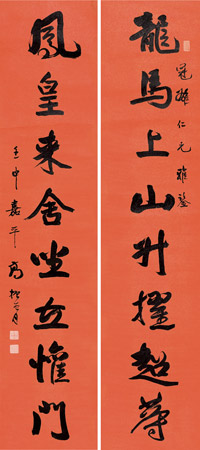 龍馬上山升擢超等
仁兄雅鑒
鳳皇来舍坐立懽門
壬申嘉平